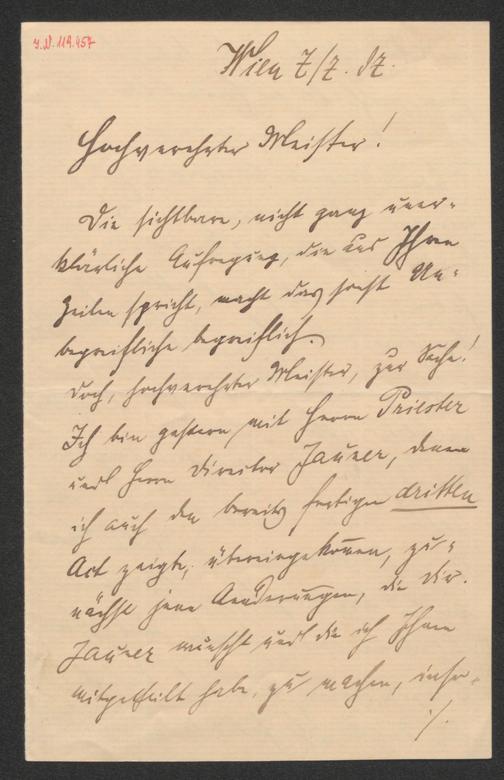 I.N. 119.957
Wien 7/7. 87.
Hochverehrter Meister!
Die sichtbare, nicht ganz uner-
klärliche Aufregung, die aus Ihren
Zeilen spricht, macht das sonst Un-
begreifliche begreiflich.
Doch, hochverehrter Meister, zur Sache!
Ich bin gestern mit Herrn Priester
und Herrn Director Jauner, denen
ich auch den bereits fertigen dritten
Act zeigte, übereingekommen, zu-
nächst jene Aenderungen, die Dir.
Jauner wünscht und die ich Ihnen
mitgetheilt habe, zu machen, inso-
./.